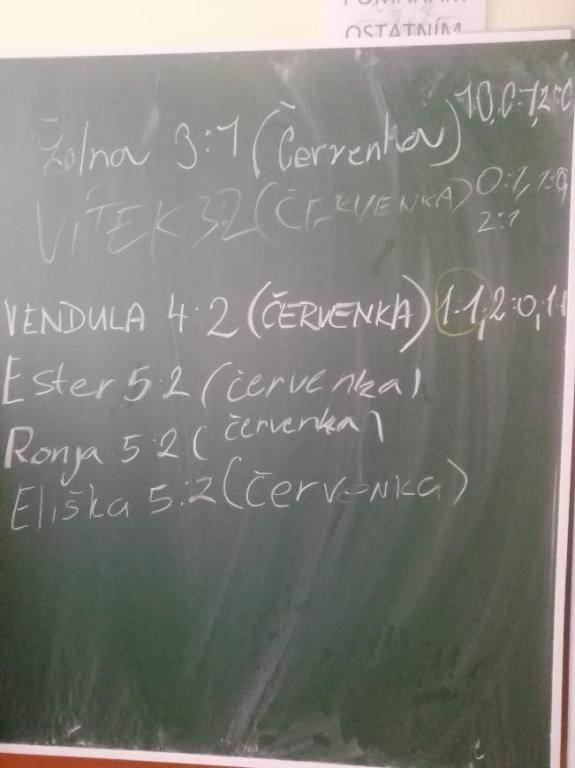 POMÁHÁM
OSTATNÍM
3:1 (Červenkov) 10,0:1,2:0
VÍTEK 3:2 (ČERVENKA) 0:1, 1:0,
2:1
VENDULA 4:2 (ČERVENKA) 1:1, 2:0, 1:1
Ester 5:2 (červenka)
Ronja 5:2 (červenka)
Eliška 5:2 (Červenka)